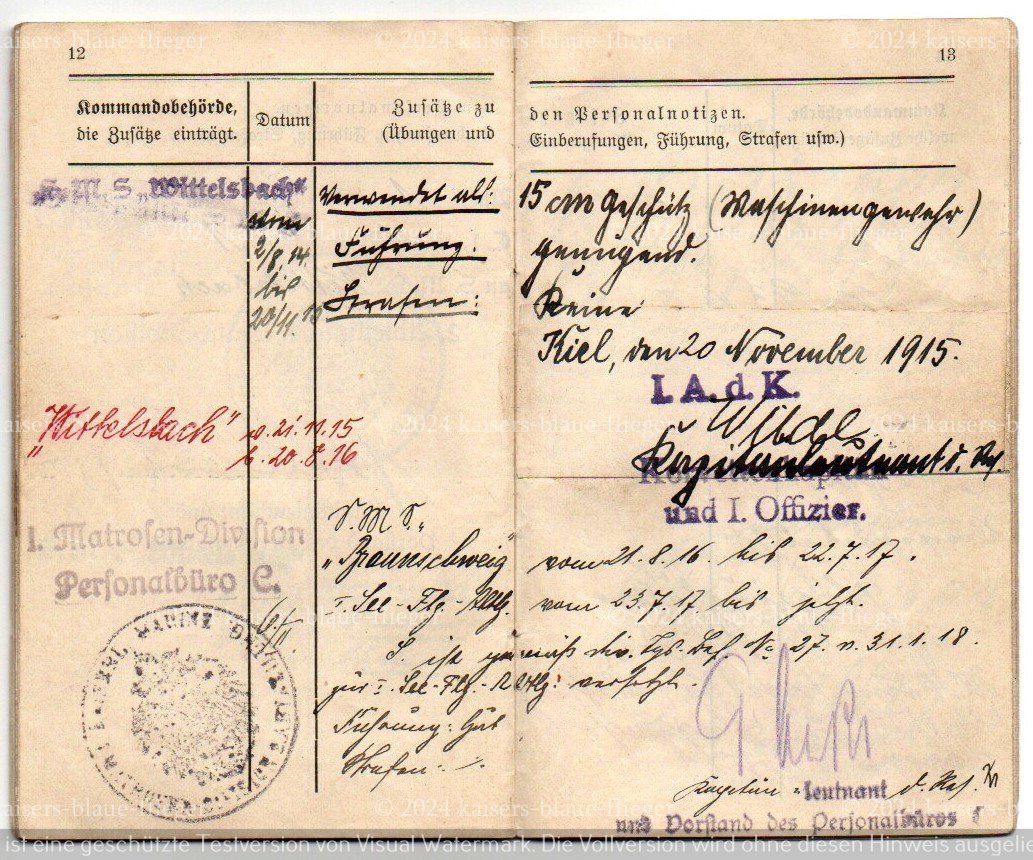 12
Kommandobehörde,
die Zusätze einträgt.
Datum
Zusätze zu
(Übungen und
S. M. S. „Wittelsbach“
vom
2/8. 14.
bis
20/11. 15
Verwendet als:
Führung:
Strafen:
"Wittelsbach" v. 21. 11. 15
b. 20. 8. 16
I. Matrosen-Division
Personalbüro C.
S. M. S. „
"Braunschweig"
I. See-Flg.-Abtlg.
S. ist gemäß div. Tgs. Bef. No 27. v. 31. 1. 18.
zur I. See-Flg.-Abtlg. versetzt.
Führung: Gut
Strafen: -.
13
den Personalnotizen.
Einberufungen, Führung, Strafen usw.)
15 cm Geschütz (Maschinengewehr)
genügend.
Keine
Kiel, den 20 November 1915.
I. A. d. K.
Kapitänleutnant d. Res.
und I. Offizier.
vom 21. 8. 16. bis 22. 7. 17.
vom 23. 7. 17. bis jetzt.
Kapitän-leutnant d. Res.
und Vorstand des Personalbüros
© 2024 kaisers-blaue-flieger
ist eine geschützte Testversion von Visual Watermark. Die Vollversion wird ohne diesen Hinweis ausgelie